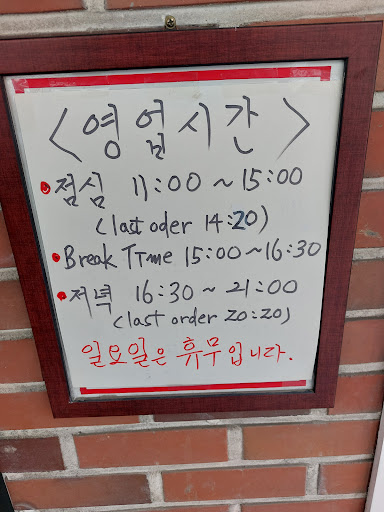 <영업시간>
• 점심 11:00 ~ 15:00
(last oder 14:20)
• Break TIme 15:00~16:30
• 저녁 16:30 ~ 21:00
(last order 20:20)
일요일은 휴무입니다.